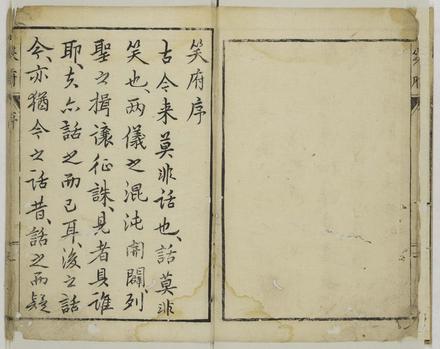 笑府序
古今来莫非話也、話莫非
笑也、两儀之混沌開闢、列
聖之揖讓征誅、見者其誰
耶、夫亦話之而已耳、後之話
今、亦猶今之話昔、話之而疑